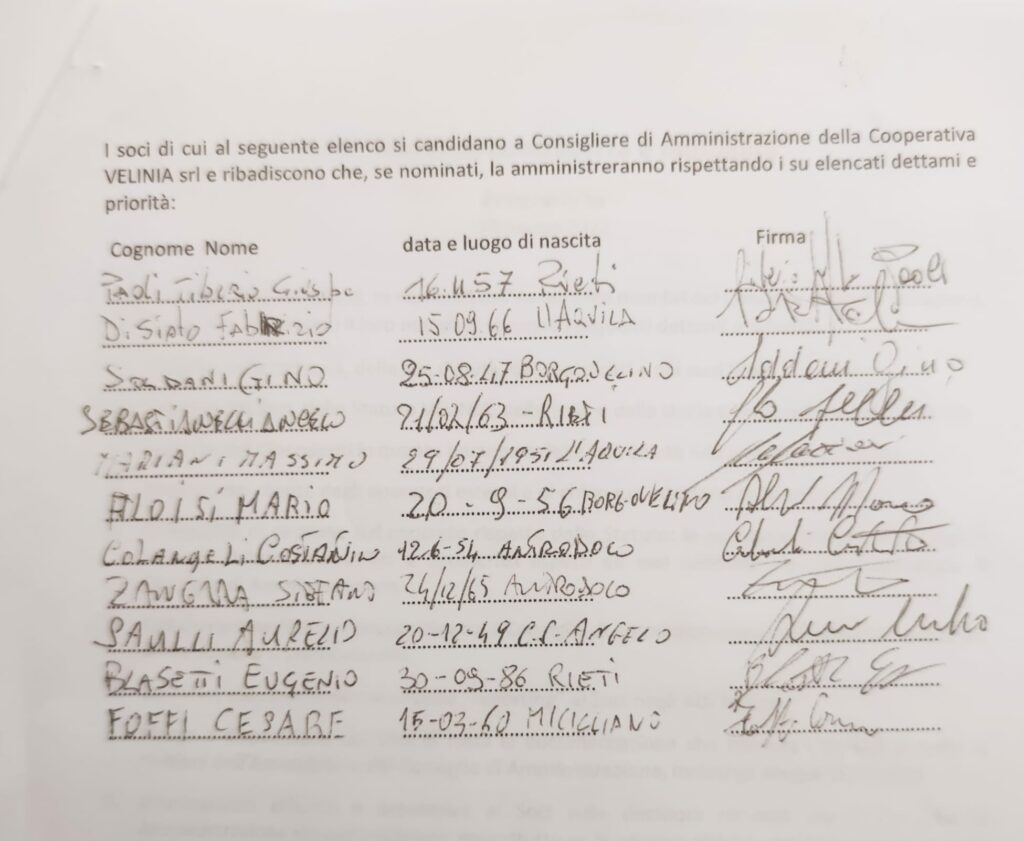 I soci di cui al seguente elenco si candidano a Consigliere di Amministrazione della Cooperativa
VELINIA srl e ribadiscono che, se nominati, la amministreranno rispettando i su elencati dettami e
priorità:
Cognome Nome data e luogo di nascita Firma
Paoli Tiberio 16.11.57 Rieti Paoli
Di Sisto Fabrizio 15.09.66 L'AQUILA
SOLDANI GINO 25-08-47 BORGOVELINO Soldani Gino
SEBASTIANELLI ANGELO 21/02/63 - RIETI
MARIANI MASSIMO 29/07/1951 L'AQUILA
ALOISI MARIO 20 - 9 - 56 BORGOVELINO
COLANGELI COSTANTINO 12.6-54 ANTRODOCO
STEFANO 24/12/65 ANTRODOCO
SAULLI AURELIO 20-12-49 C.S. ANGELO
BLASETTI EUGENIO 30-09-86 RIETI
FOFFI CESARE 15-03-60 MICIGLIANO